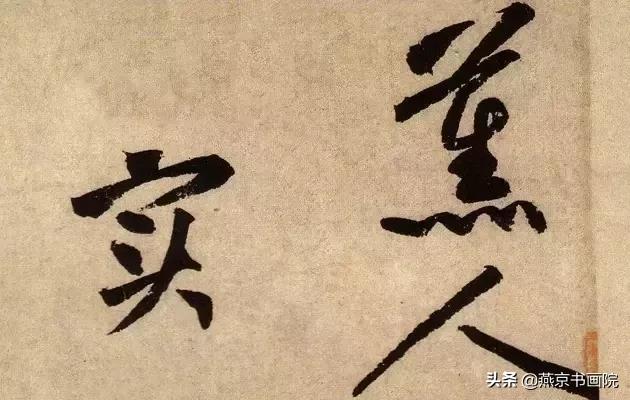 薰人
实
头条 @燕京书画院